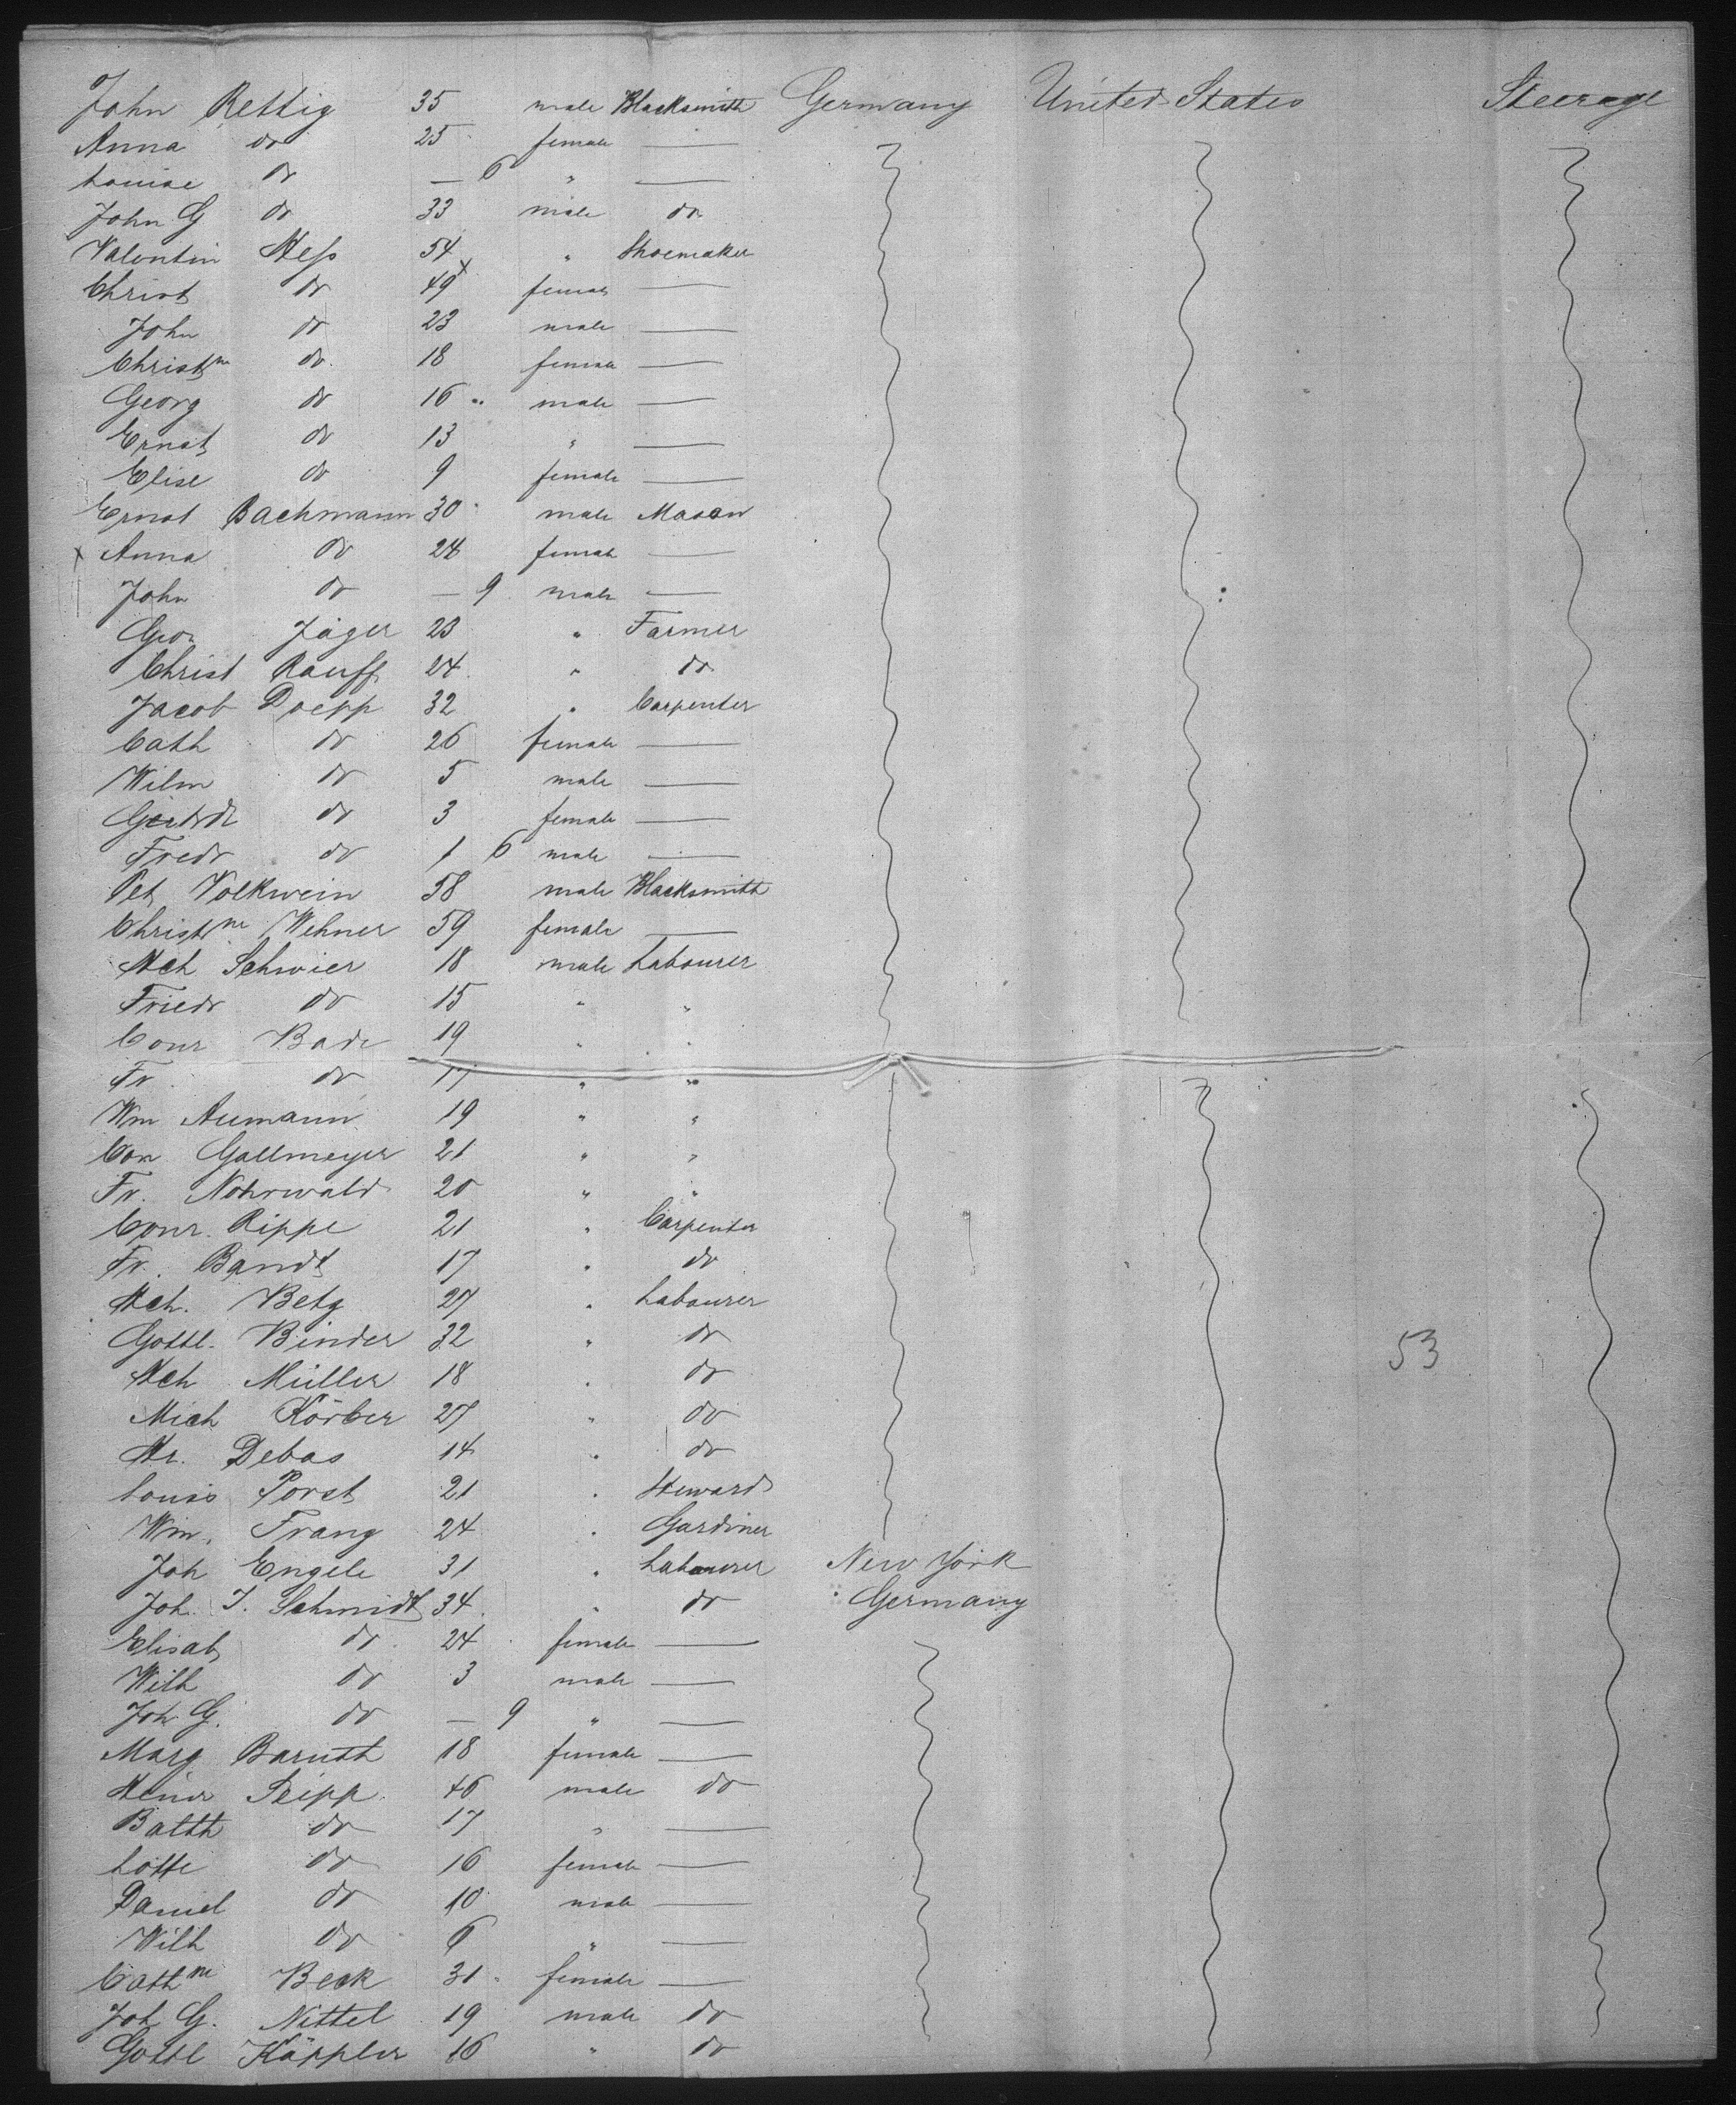 John Rettig 35 male Blacksmith Germany United States Steerage
Anna do 25 female —
Louise do — 6 " —
John G do 33 male do
Valentin Hess 54 " Shoemaker
Christ do 49 female —
John do 23 male —
Christne do 18 female —
Georg do 16 male —
Ernst do 13 " —
Elise do 9 female —
Ernst Bachmann 30 male Mason
Anna do 24 female —
John do — 9 male —
Geo. Jäger 23 " Farmer
Christ Rauff 24 " do
Jacob Doepp 32 " Carpenter
Cath do 26 female —
Wilm do 5 male —
do 3 female —
Fredr do 1 6 male —
Pet Volkwein 58 male Blacksmith
Christne Wehner 59 female —
Hch Schwier 18 male Labourer
Friedr do 15 " "
Conr Bade 19 " "
Fr do 17 " "
Wm Aumann 19 " "
Con Gallmeyer 21 " "
Fr. Nohrwald 20 " "
Conr. Rippe 21 " Carpenter
Fr. Bandt 17 " do
Hch. Betz 27 " Labourer
Gottl. Binder 32 " do
Hch Müller 18 " do
53
Mich Körber 27 " do
Hr. Debas 14 " do
Louis Porst 21 " Steward
Wm. Franz 24 " Gardiner
Joh Engele 31 " Labourer New York
Joh. J. Schmidt 34 " do Germany
Elisab do 24 female —
Wilh do 3 male —
Joh G. do — 9 " —
Marg Baruth 18 female —
Heinr Seipp 46 male do
Balth do 17 " —
Lotte do 16 female —
Daniel do 10 male —
Wilh do 6 " —
Cathne Beck 31 female —
Joh G. Nittel 19 male do
Gottl Käppler 16 " do